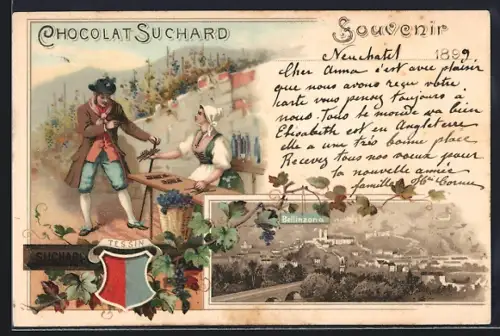 CHOCOLAT SUCHARD
Souvenir
Neuchatel 1899
Cher Anna c'est avec plaisir
que nous avons reçu votre
carte vous pensez toujours a
nous. Tous le monde va bien
Elisabeth est en Angleterre
elle a une très bonne place
Recevez tous nos voeux pour
la nouvelle année
famille Hri Cornu
Bellinzona
TESSIN
SUCHARD